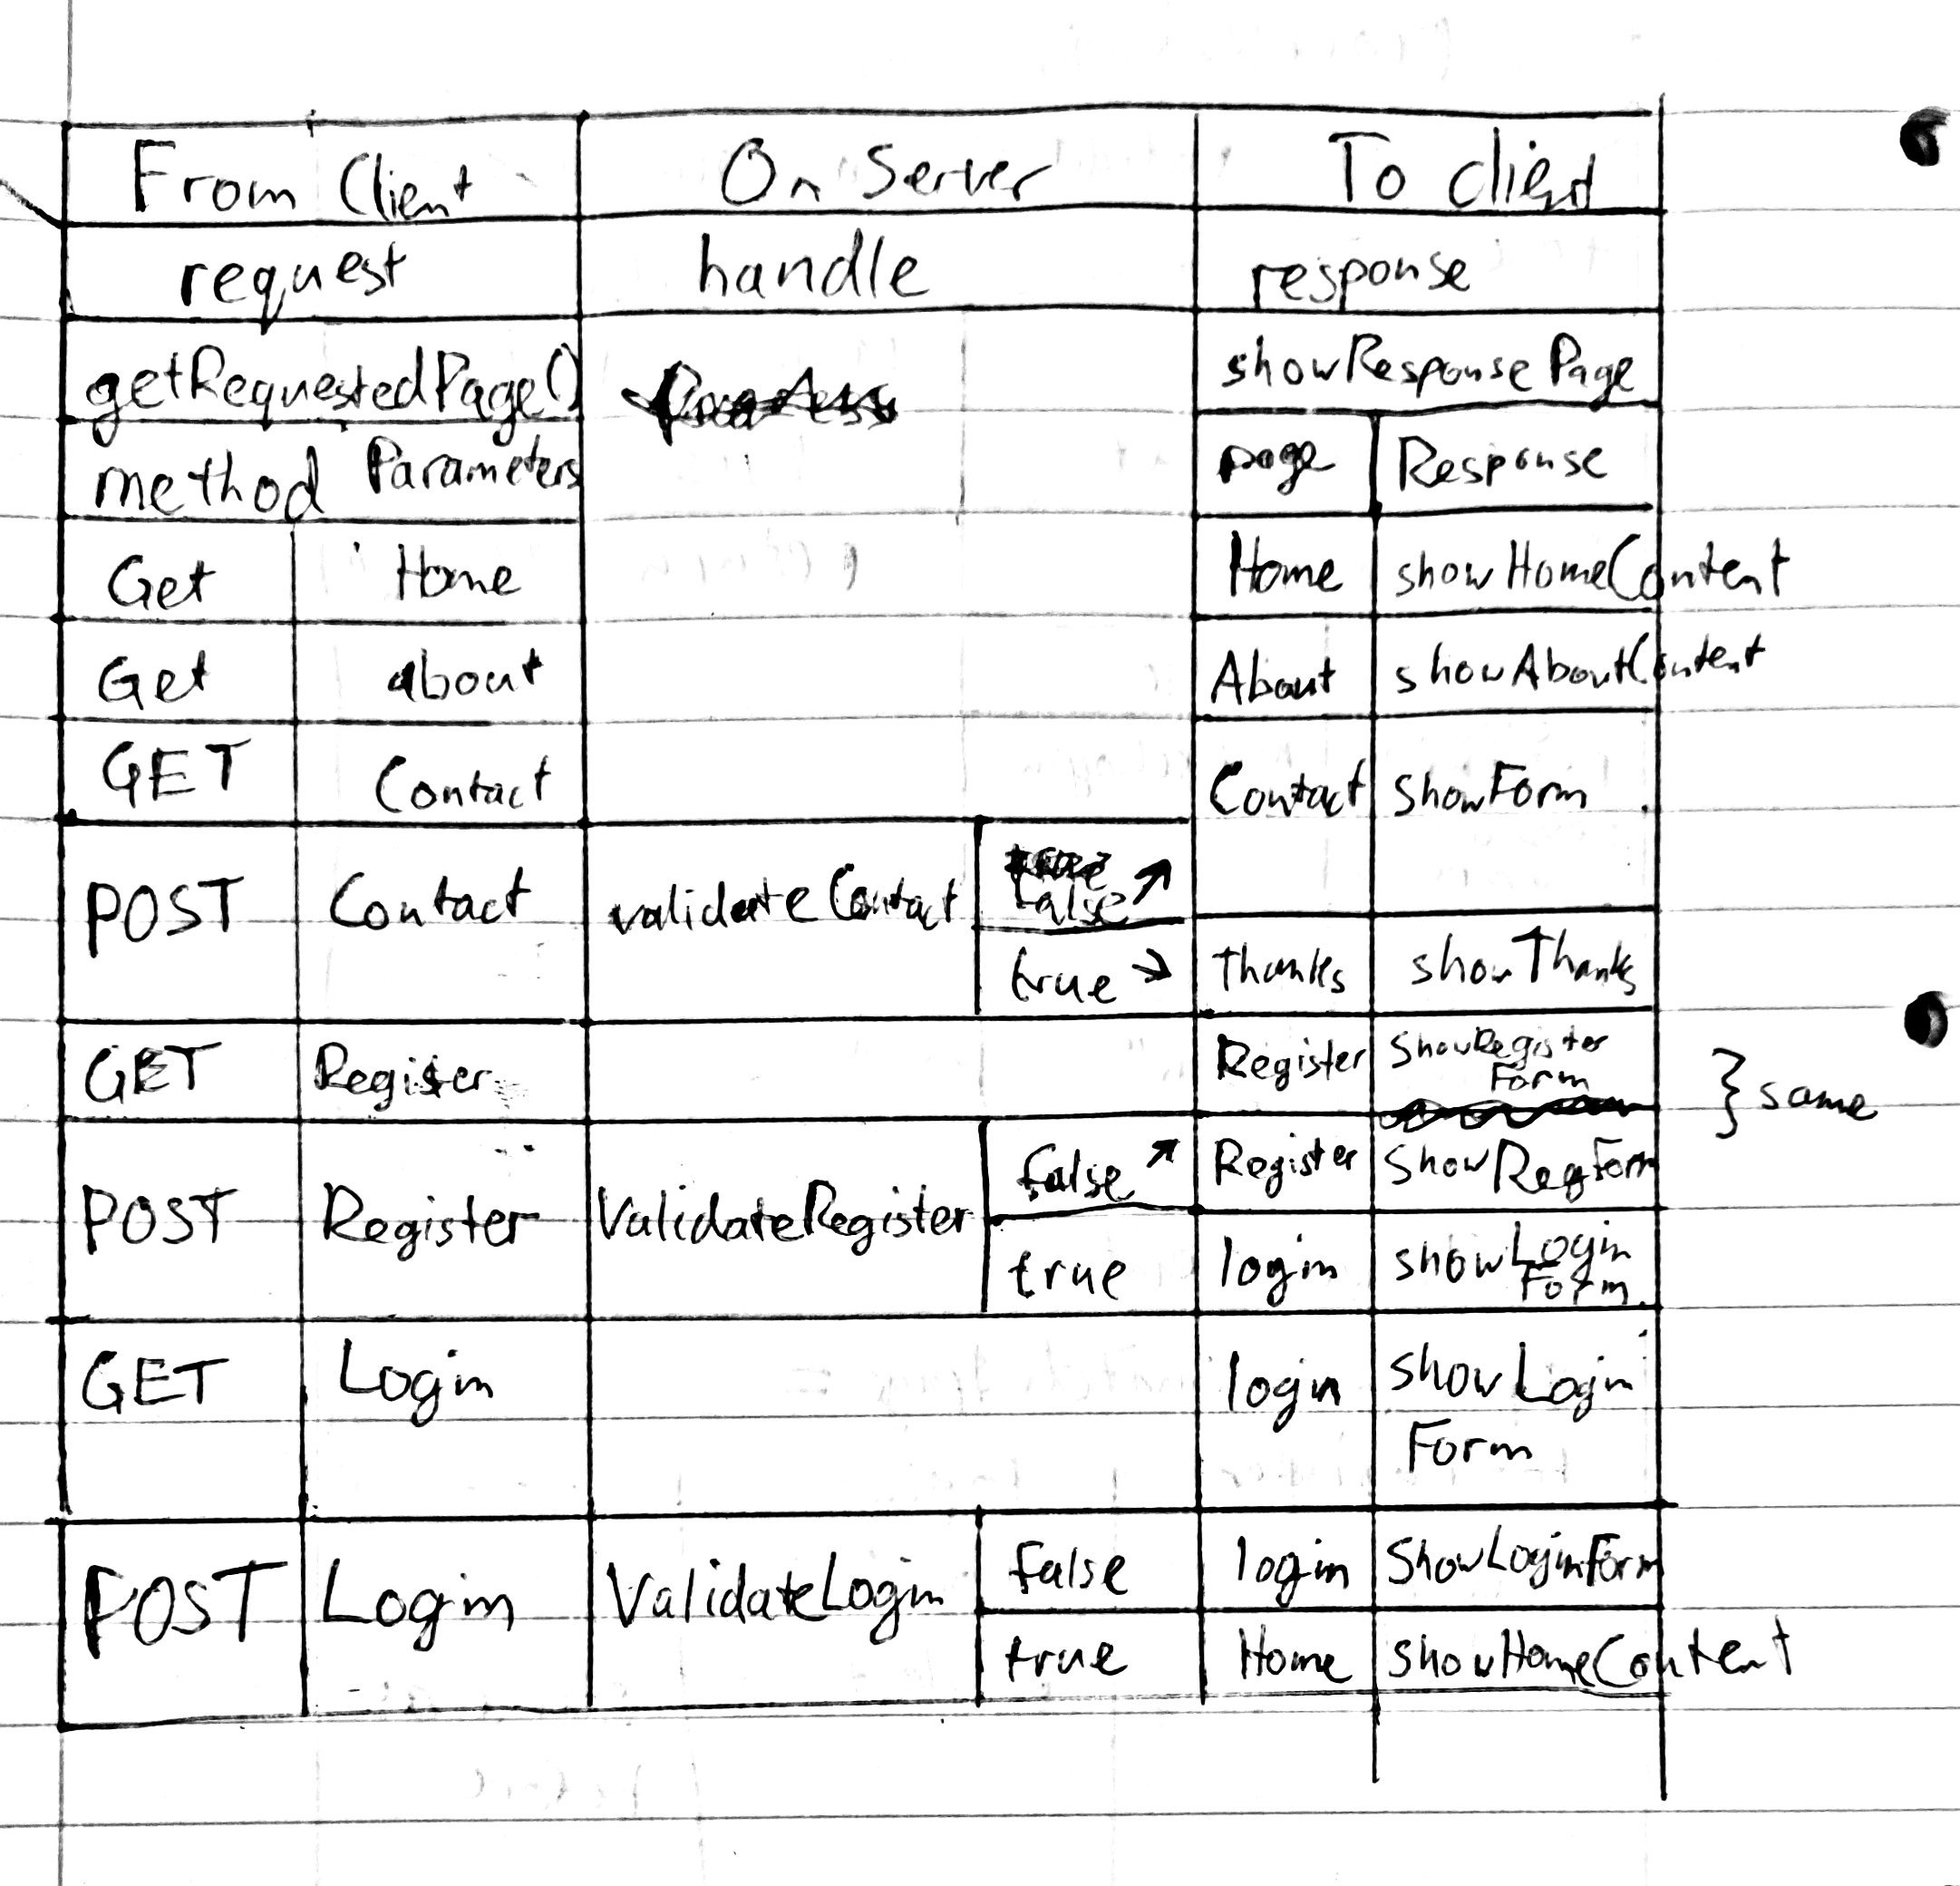 From Client On Server To client
request handle response
getRequestedPage() showResponsePage
method Parameters page Response
Get Home Home showHomeContent
Get about About showAboutContent
GET Contact Contact showForm
POST Contact validateContact false ↗
true → Thanks showThanks
GET Register Register ShowRegister
Form
} same
POST Register ValidateRegister false ↗ Register ShowRegForm
true login showLogin
Form
GET Login login showLogin
Form
POST Login ValidateLogin false login ShowLoginForm
true Home showHomeContent